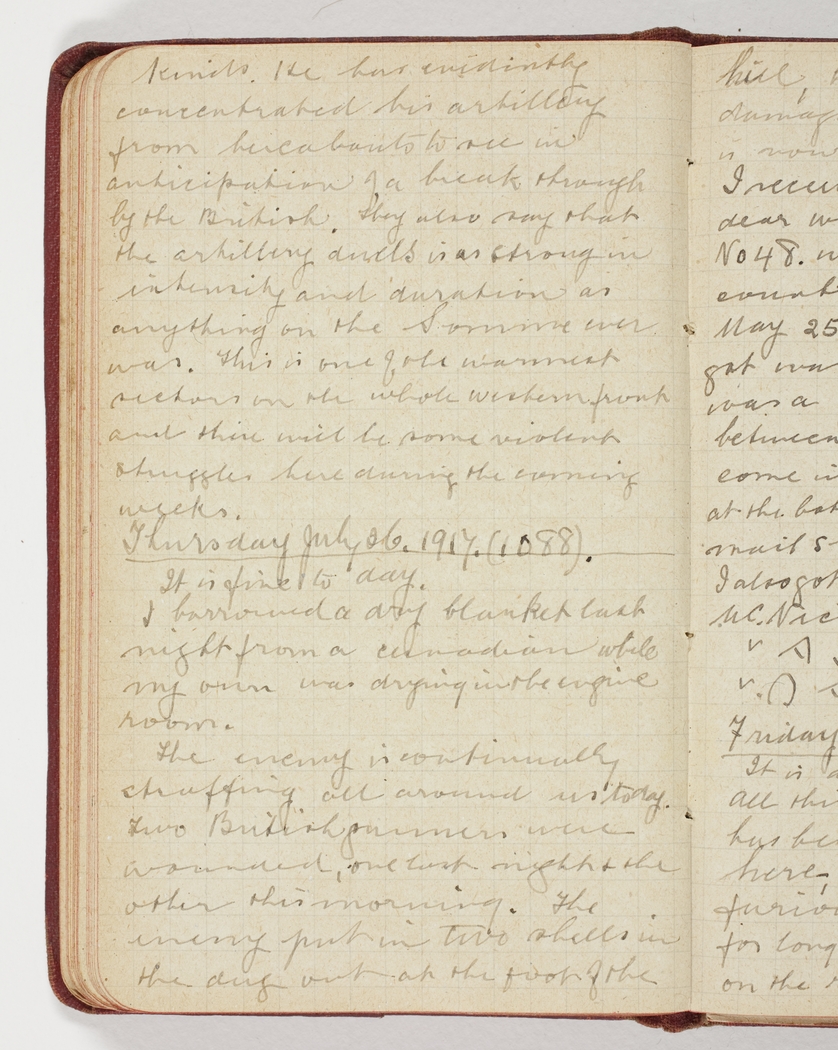 kinds. He has evidintly
concentrated his artillery
from hereabouts to see in
anticipation of a break through
by the British. They also say that
the artillery duels is as strong in
intensity and duration as
anything on the Somme ever
was. This is one of the warmest
sectors on the whole western front
and there will be some violent
struggles here during the coming
weeks.
Thursday July 26. 1917. (1088).
It is fine to day.
I borrowed a dry blanket last
night from a canadian while
my own was drying in the engine
room.
The enemy is continually
straffing all around us today.
Two British gunners were
wounded, one last night & the
other this morning. The
enemy put in two shells in
the dug out at the foot of the
hill,
damag
is now
I recei
dear w
No 48. w
count
May 25
got wa
was a
between
come i
at the bot
mail s
I also got
Mc. Nic
Friday
It is a
All thi
has be
here,
furio
for long
on the